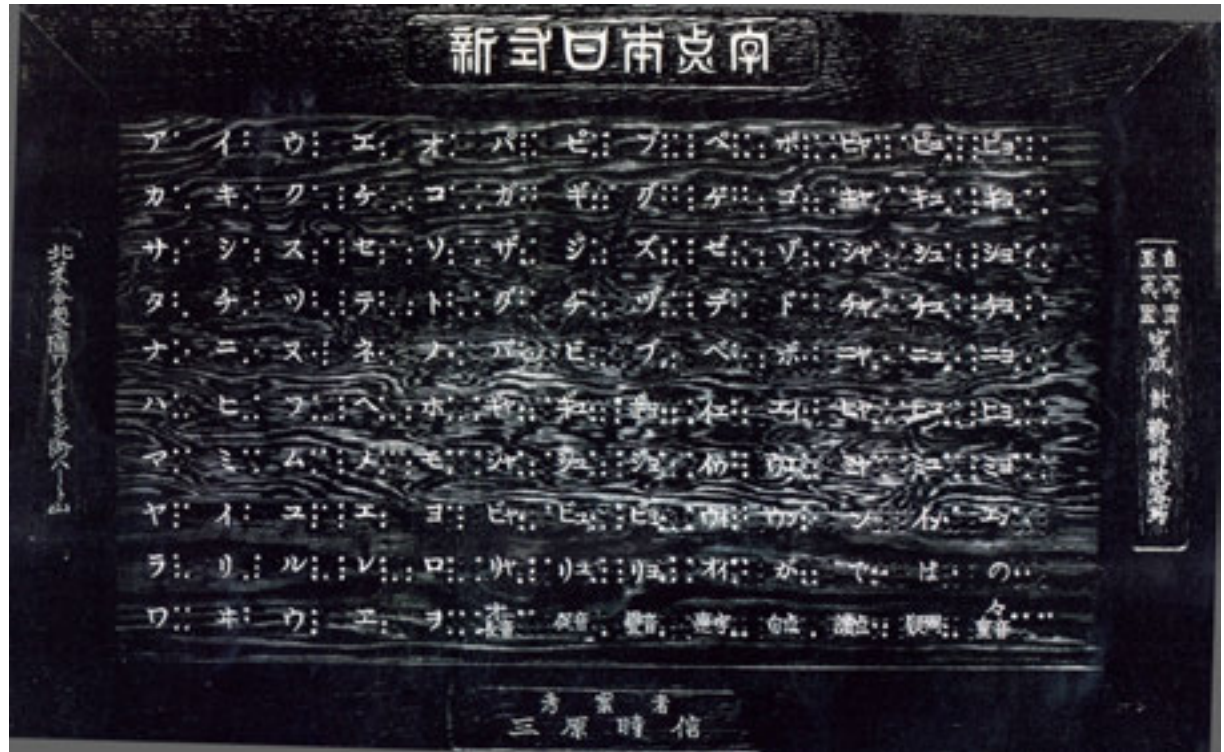 新式日本点字
ア イ ウ エ オ パ ピ プ ペ ポ ピャ ピュ ピョ
カ キ ク ケ コ ガ ギ グ ゲ ゴ キャ キュ キョ
サ シ ス セ ソ ザ ジ ズ ゼ ゾ シャ シュ ショ
タ チ ツ テ ト ダ ヂ ヅ デ ド チャ チュ チョ
ナ ニ ヌ ネ ノ バ ビ ブ ベ ボ ニャ ニュ ニョ
ハ ヒ フ ヘ ホ ギャ ギュ ギョ イェ エイ ヒャ ヒュ ヒョ
マ ミ ム メ モ ジャ ジュ ジョ ウェ ミャ ミュ ミョ
ヤ イ ユ エ ヨ ビャ ビュ ビョ ウィ ン
ラ リ ル レ ロ リャ リュ リョ オイ が で は の
ワ ヰ ウ ヱ ヲ 長音 促音 句点 読点 々 重音
考案者
三原時信